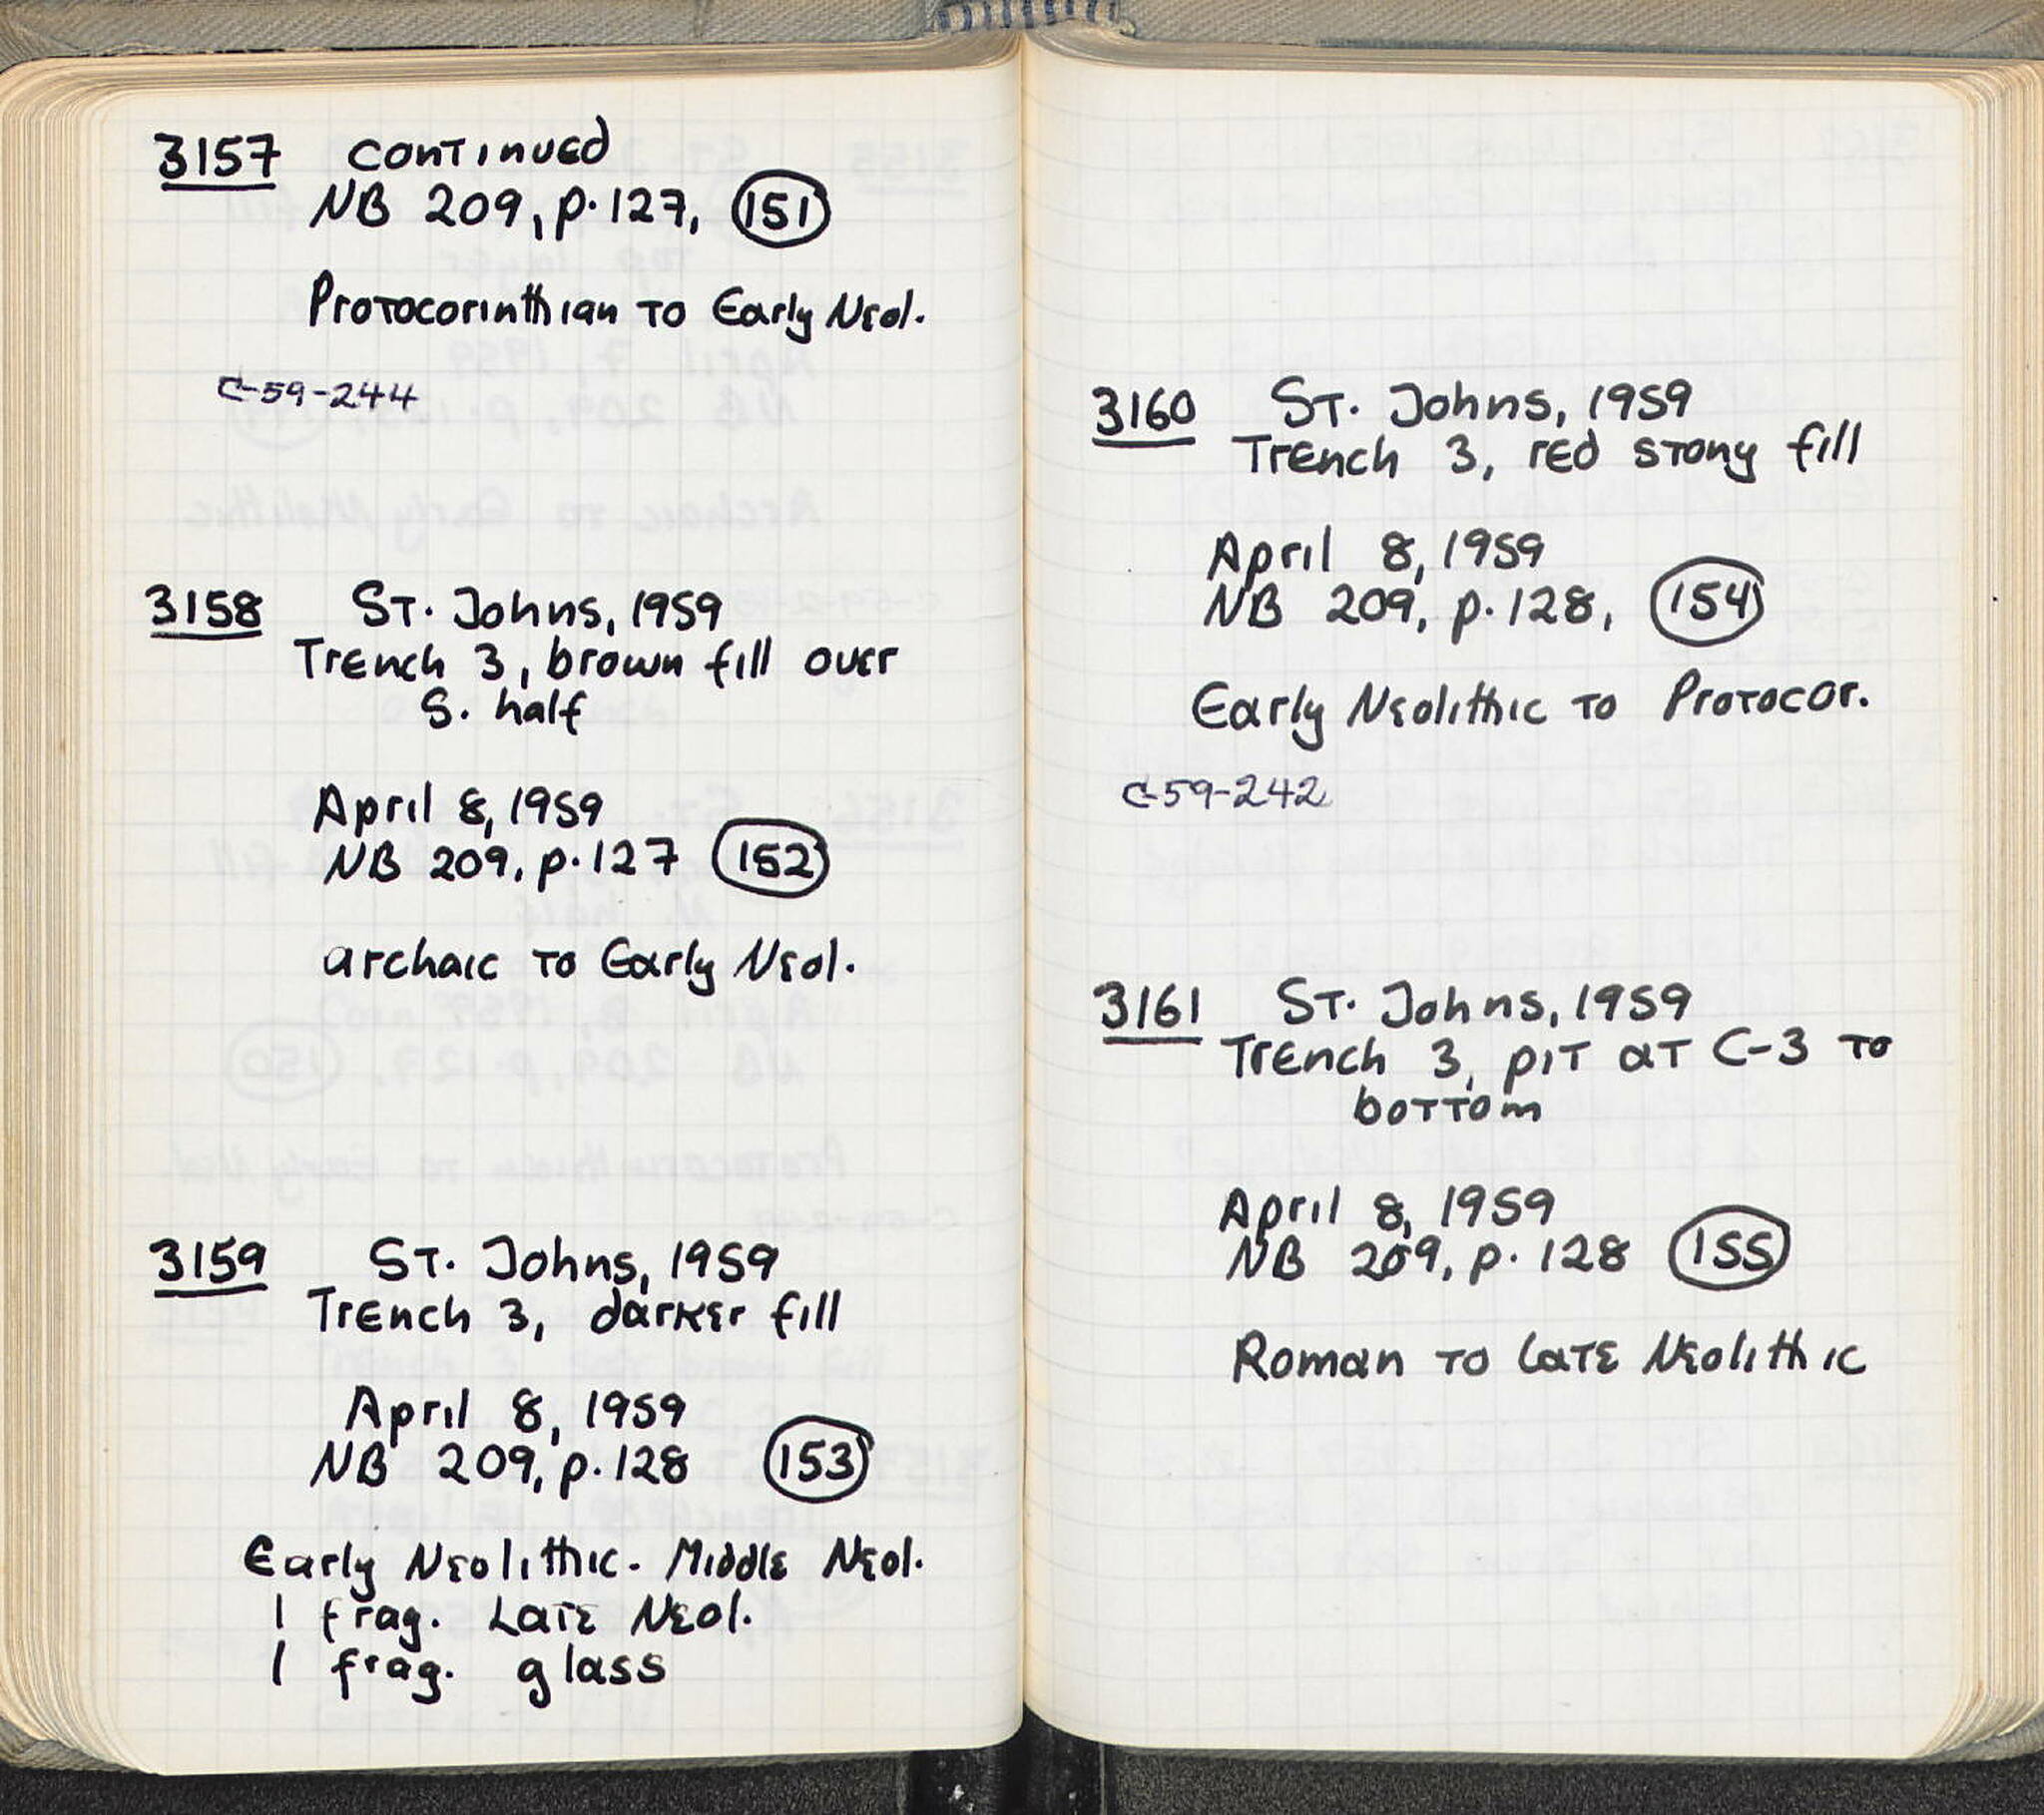 3157 continued
NB 209, p. 127, 151
Protocorinthian to Early Neol.
C-59-244
3158 St. Johns, 1959
Trench 3, brown fill over
S. half
April 8, 1959
NB 209, p. 127 152
archaic to Early Neol.
3159 St. Johns, 1959
Trench 3, darker fill
April 8, 1959
NB 209, p. 128 153
Early Neolithic. Middle Neol.
1 frag. Late Neol.
1 frag. glass
3160 St. Johns, 1959
Trench 3, red stony fill
April 8, 1959
NB 209, p. 128, 154
Early Neolithic to Protocor.
C-59-242
3161 St. Johns, 1959
Trench 3, pit at C-3 to
bottom
April 8, 1959
NB 209, p. 128 155
Roman to Late Neolithic